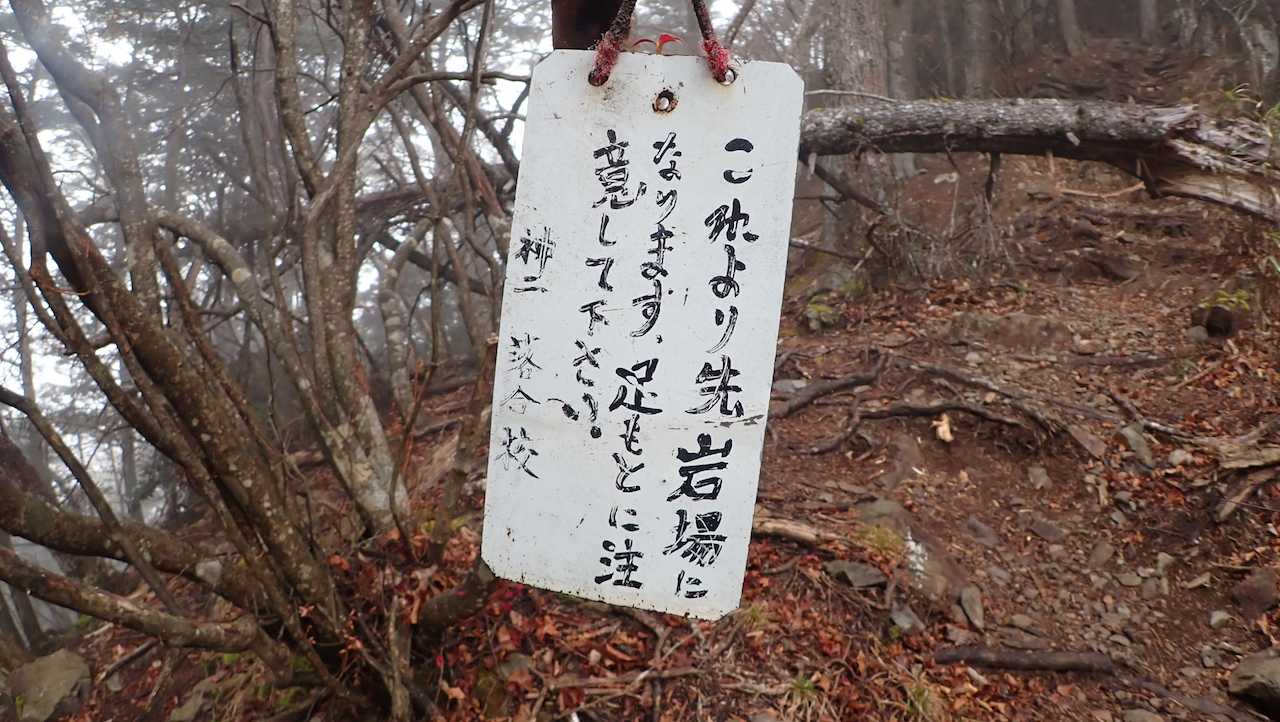 この地より先岩場に
なります、足もとに注
意して下さい!
神二 落合校